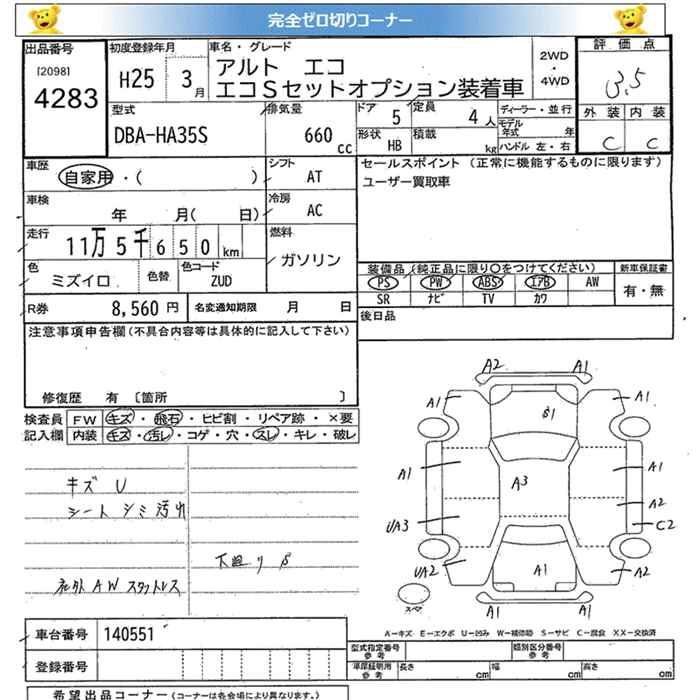 完全ゼロ切りコーナー
出品番号
[2098]
4283
初度登録年月
H25 3月
車名・グレード
アルト エコ
エコSセットオプション装着車
2WD
・
4WD
評価点
3.5
外装 内装
C C
型式
DBA-HA35S
排気量
660 cc
ドア 5
形状 HB
定員 4人
積載 kg
ディーラー・並行
モデル年式 年
ハンドル 左・右
車歴
自家用・( )
シフト
AT
セールスポイント (正常に機能するものに限ります)
ユーザー買取車
車検
年 月( 日)
冷房
AC
走行
11万5千650km
燃料
ガソリン
色
ミズイロ
色替
色コード
ZUD
装備品(純正品に限り○をつけてください)
PS PW ABS エアB AW
SR ナビ TV カワ
新車保証書
有・無
R券 8,560円
名変通知期限 月 日
後日品
注意事項申告欄(不具合内容等は具体的に記入して下さい)
修復歴 有 〔箇所 〕
検査員記入欄
FW キズ・飛石・ヒビ割・リペア跡・×要
内装 キズ・汚レ・コゲ・穴・スレ・キレ・破レ
キズ U
シート シミ汚れ
下廻り S
社外AW スタットレス
A2 A1
A1 S1 A1
A1 A3 A1
A2
UA3 C2
UA2 A1 A2
A1
スペア
A-キズ E-エクボ U-凹み W-補修跡 S-サビ C-腐食 XX-交換済
車台番号 140551
登録番号
型式指定番号
参考
類別区分番号
参考
車庫証明用
参考
長さ cm 幅 cm 高さ cm
希望出品コーナー(コーナーは各会場により異なります。)